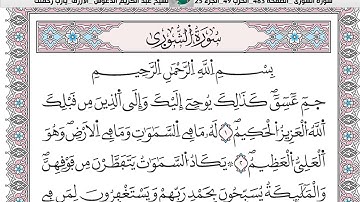 سورة الشورى _الصفحة 483_الحزب 49_الجزء 25 _ الشيخ عبد الكريم الدغوش _الأزرق_يارب رحمتك
سُورَةُ الشُّورَىٰ
بِسْمِ اللَّهِ الرَّحْمَٰنِ الرَّحِيمِ
حمٓ عٓسٓقٓ ۖ كَذَٰلِكَ يُوحِىٓ إِلَيْكَ وَإِلَى ٱلَّذِينَ مِن قَبْلِكَ
ٱللَّهُ ٱلْعَزِيزُ ٱلْحَكِيمُ ۝١ لَهُۥ مَا فِى ٱلسَّمَٰوَٰتِ وَمَا فِى ٱلْأَرْضِ وَهُوَ
ٱلْعَلِىُّ ٱلْعَظِيمُ ۝٢ يَكَادُ ٱلسَّمَٰوَٰتُ يَتَفَطَّرْنَ مِن فَوْقِهِنَّ
وَٱلْمَلَٰٓئِكَةُ يُسَبِّحُونَ بِحَمْدِ رَبِّهِمْ وَيَسْتَغْفِرُونَ لِمَن فِى